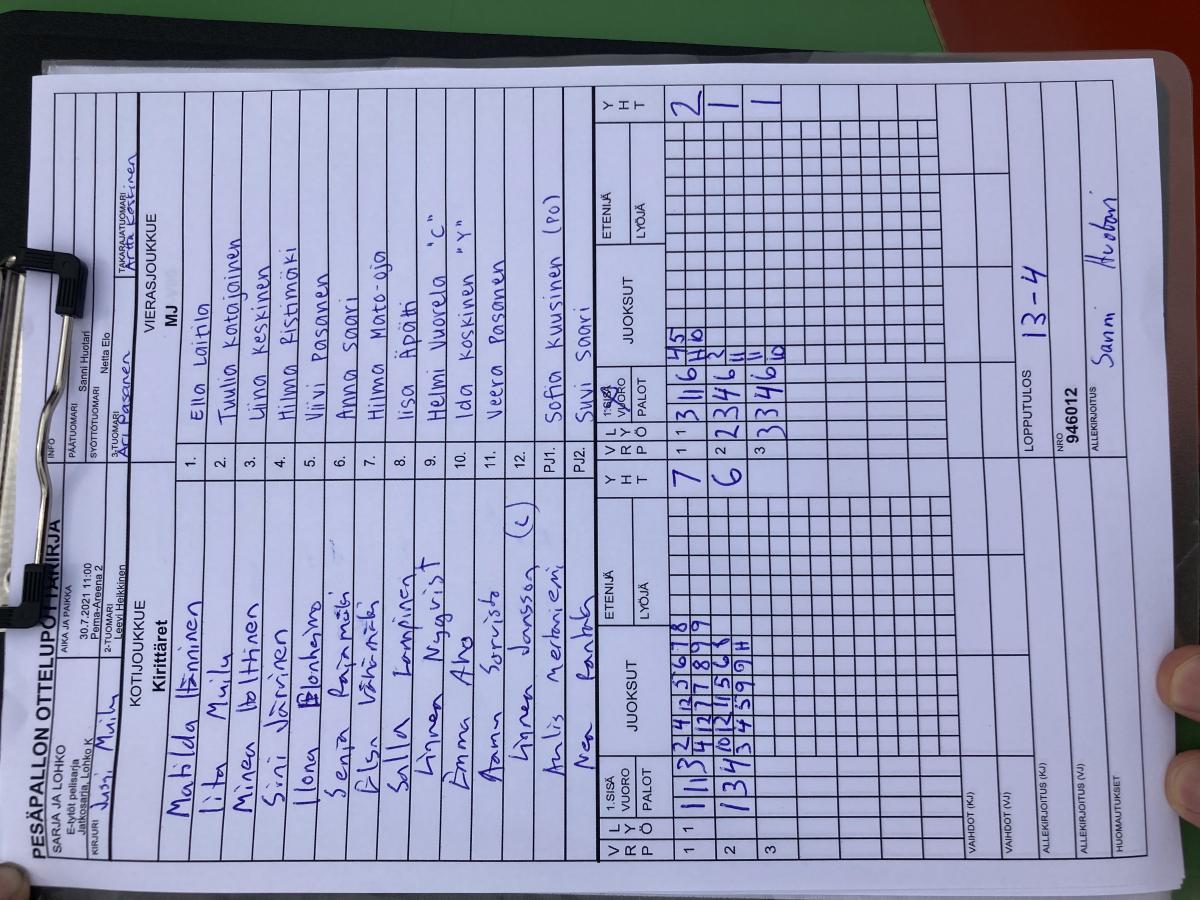 PESÄPALLON OTTELUPÖYTÄKIRJA
SARJA JA LOHKO
E-tytöt pelisarja
Jatkosarja, Lohko K
AIKA JA PAIKKA
30.7.2021 11:00
Pema-Areena 2
INFO
PÄÄTUOMARI Sanni Huotari
SYÖTTÖTUOMARI Netta Elo
KIRJURI Jussi Muilu
2-TUOMARI
Leevi Heikkinen
3-TUOMARI
Ari Pasanen
TAKARAJATUOMARI
Arttu Koskinen
KOTIJOUKKUE
Kirittäret
VIERASJOUKKUE
MJ
Matilda Hänninen 1. Ella Laitila
Iita Muilu 2. Tuulia Katajainen
Minea 3. Liina Keskinen
Sini Järvinen 4. Hilma Ristimäki
Ilona Blonheimo 5. Viivi Pasanen
Senja Rajamäki 6. Anna Saari
Elsa Vähämäki 7. Hilma Mato-oja
Salla Lampinen 8. Iisa Äpätti
Linnea Nygvist 9. Helmi Vuorela "C"
Emma Aho 10. Ida Koskinen "Y"
Aamu Sorvisto 11. Veera Pasanen
Linnea Jansson (C) 12.
Aulis Metaniemi PJ1. Sofia Kuusinen (PO)
Nea Rantala PJ2. Suvi Saari
V R P L Y Ö 1.SISÄ VUORO PALOT JUOKSUT ETENIJÄ LYÖJÄ Y H T V R P L Y Ö 1.SISÄ VUORO PALOT JUOKSUT ETENIJÄ LYÖJÄ Y H T
1 1 1 11 3 2 4 12 5 6 7 8 7 1 1 3 11 6 4 5 2
4 12 7 7 8 9 9 11 10
2 1 3 4 10 12 11 5 6 8 6 2 2 3 4 6 2 1
3 4 5 9 9 H 11
3 3 3 3 4 6 11 1
10
VAIHDOT (KJ)
VAIHDOT (VJ)
LOPPUTULOS 13-4
ALLEKIRJOITUS (KJ)
NRO
946012
ALLEKIRJOITUS (VJ)
ALLEKIRJOITUS
Sanni Huotari
HUOMAUTUKSET